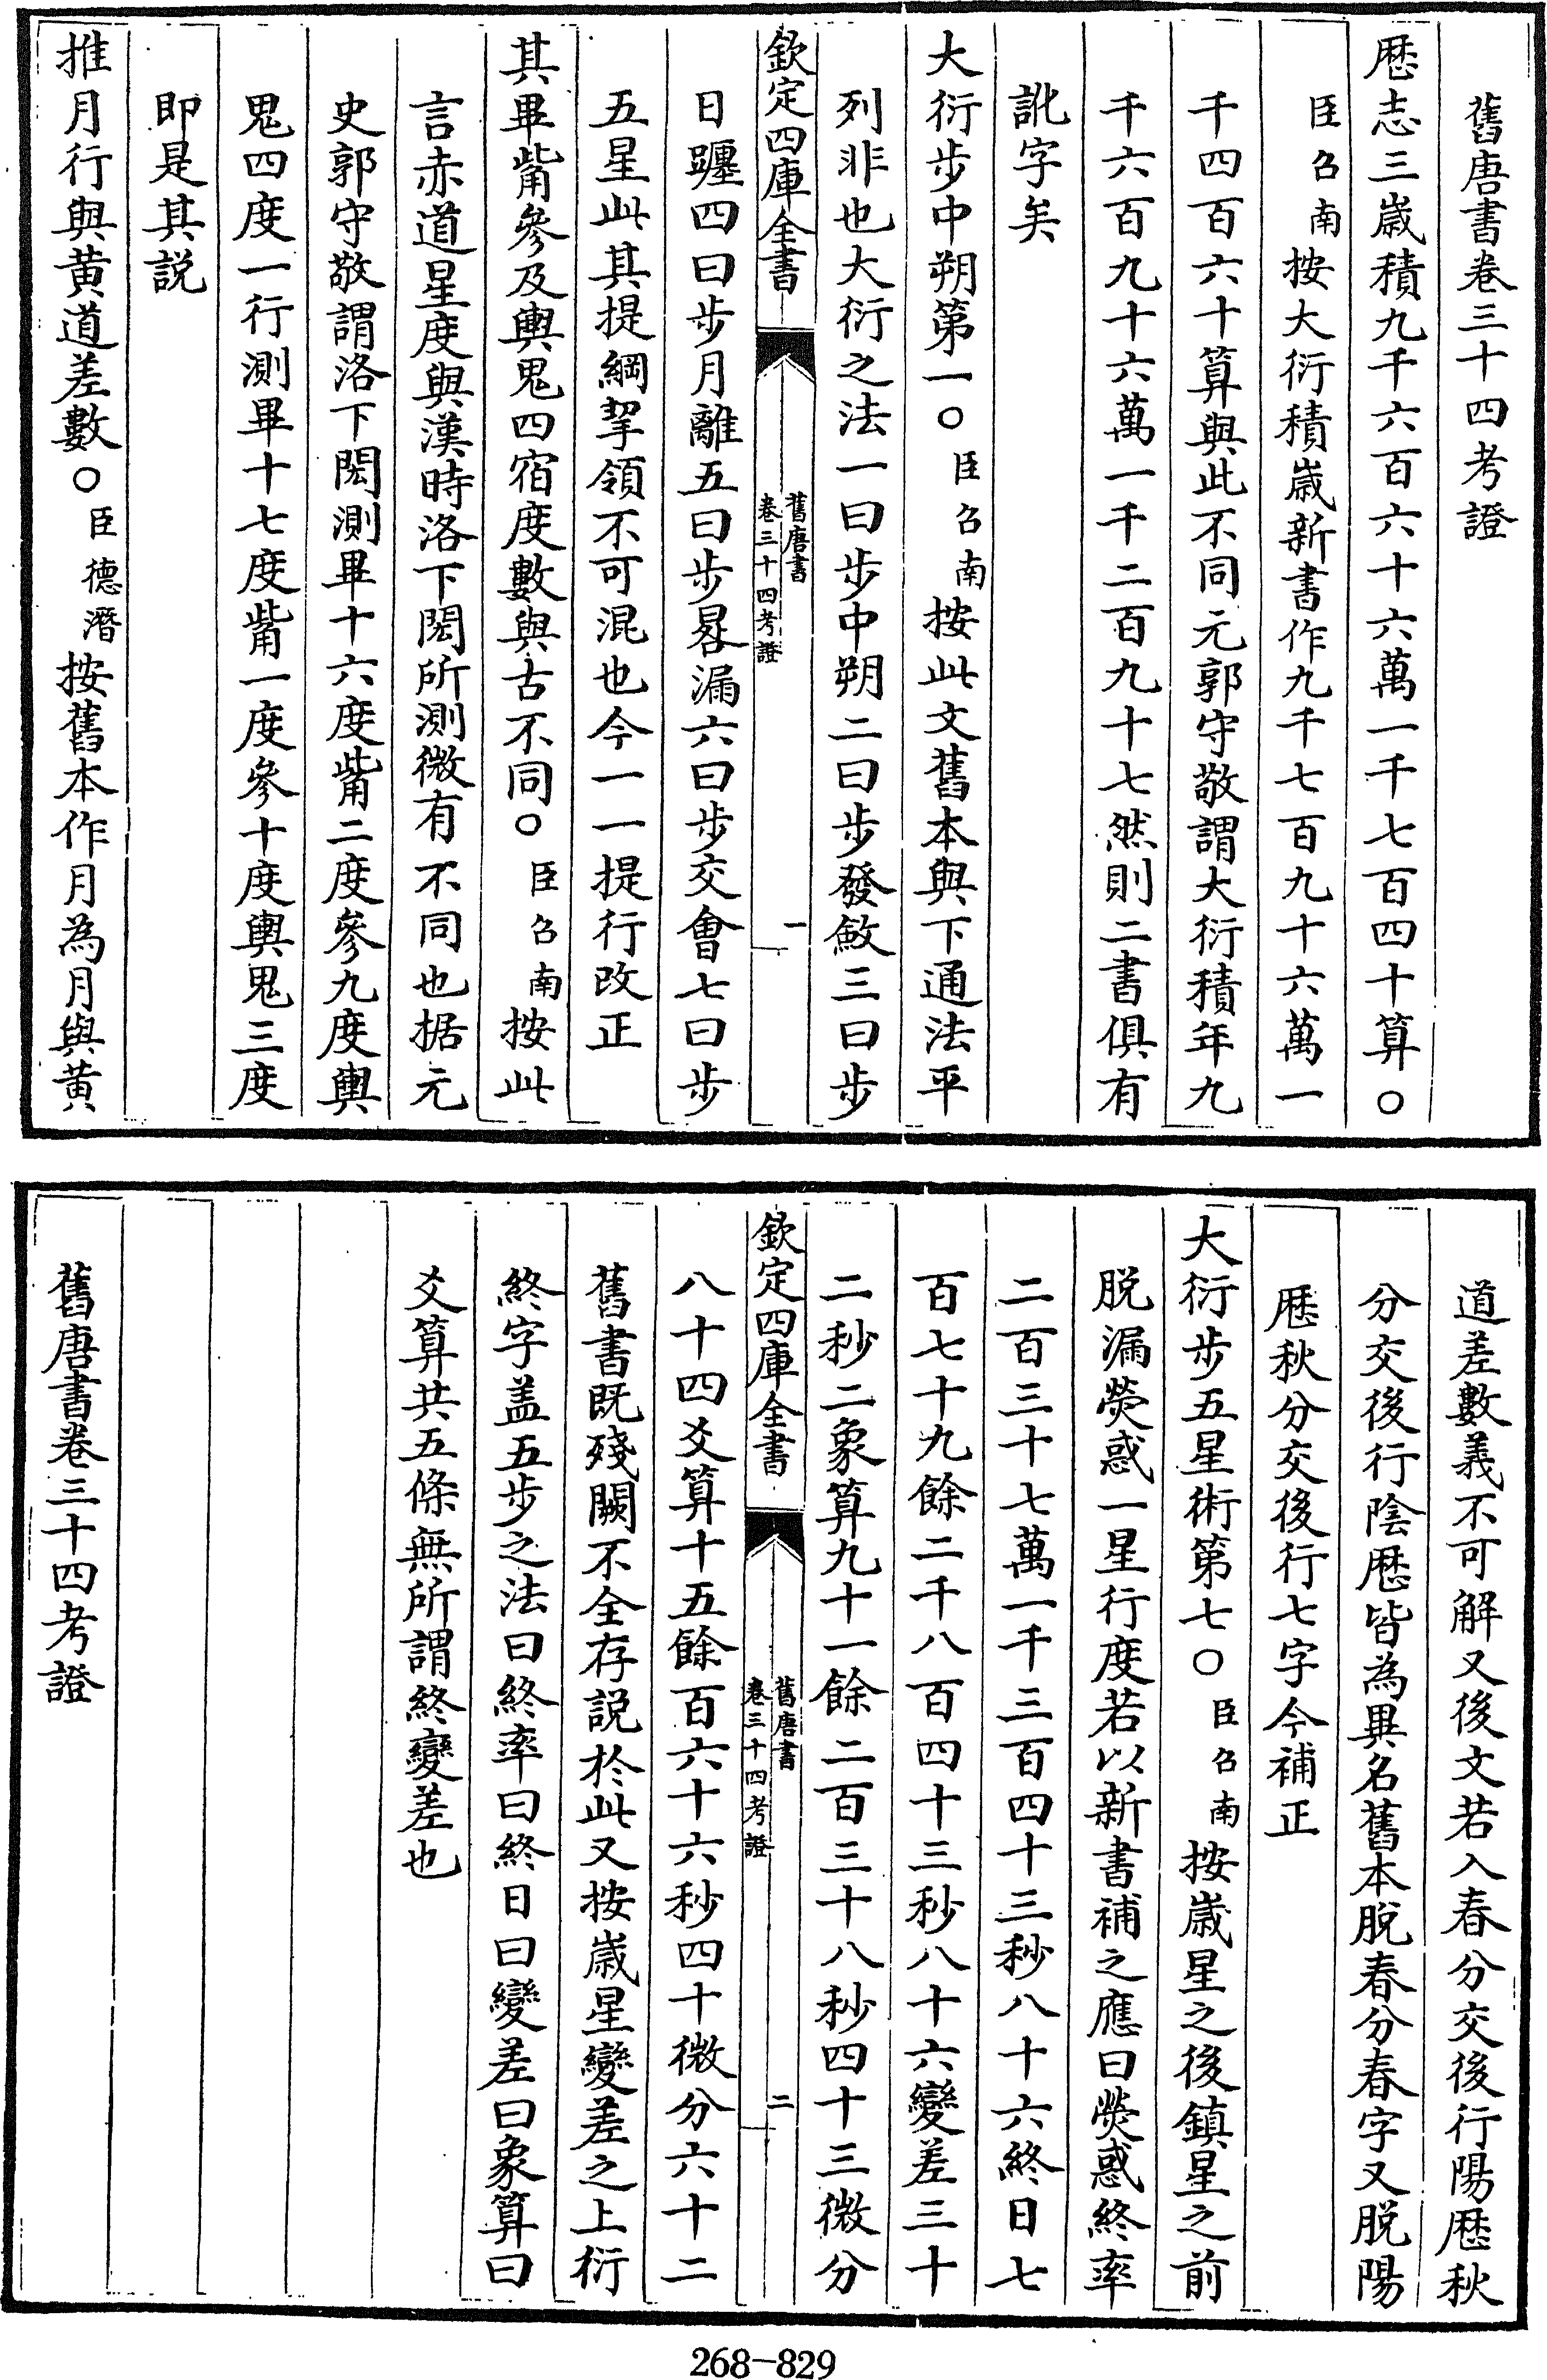 舊唐書卷三十四考證
厯志三歲積九千六百六十六萬一千七百四十算○
臣召南按大衍積歲新書作九千七百九十六萬一
千四百六十算與此不同元郭守敬謂大衍積年九
千六百九十六萬一千二百九十七然則二書俱有
訛字矣
大衍步中朔第一○臣召南按此文舊本與下通法平
列非也大衍之法一曰步中朔二曰步發斂三曰步
欽定四庫全書
舊唐書
卷三十四考證
一
日躔四曰步月離五曰步晷漏六曰步交會七曰步
五星此其提綱挈領不可混也今一一提行改正
其畢觜參及輿鬼四宿度數與古不同○臣召南按此
言赤道星度與漢時洛下閎所測微有不同也据元
史郭守敬謂洛下閎測畢十六度觜二度參九度輿
鬼四度一行測畢十七度觜一度參十度輿鬼三度
即是其説
推月行與黄道差數○臣德潛按舊本作月為月與黄
道差數義不可解又後文若入春分交後行陽厯秋
分交後行陰厯皆為異名舊本脫春分春字又脫陽
厯秋分交後行七字今補正
大衍步五星術第七○臣召南按歲星之後鎮星之前
脱漏熒惑一星行度若以新書補之應曰熒惑終率
二百三十七萬一千三百四十三秒八十六終日七
百七十九餘二千八百四十三秒八十六變差三十
二秒二象算九十一餘二百三十八秒四十三微分
欽定四庫全書
舊唐書
卷三十四考證
二
八十四爻算十五餘百六十六秒四十微分六十二
舊書既殘闕不全存説於此又按歲星變差之上衍
終字盖五步之法曰終率曰終日曰變差曰象算曰
爻算共五條無所謂終變差也
舊唐書卷三十四考證
268-829